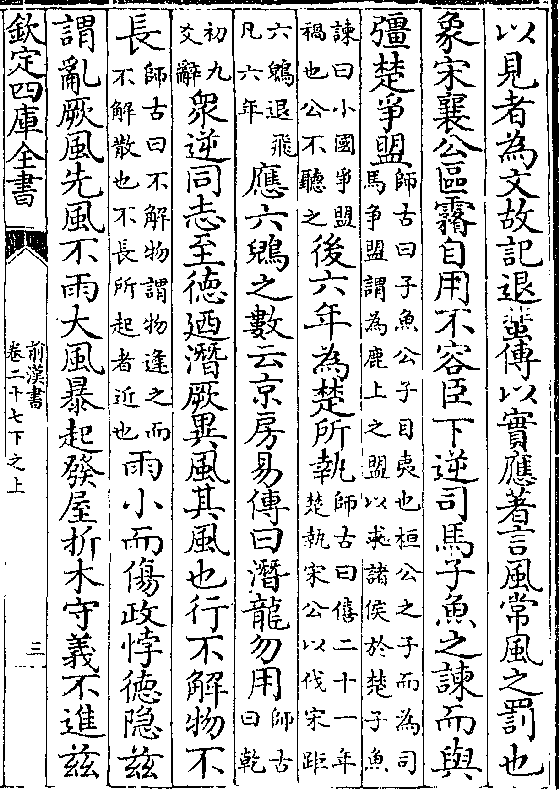 以見者為文故記退蜚傳以實應著言風常風之罰也
象宋襄公區霿自用不容臣下逆司馬子魚之諫而與
彊楚爭盟師古曰子魚公子目夷也桓公之子而為司馬爭盟謂為鹿上之盟以求諸侯於楚子魚
諫曰小國爭盟禍也公不聽之後六年為楚所執師古曰僖二十一年楚執宋公以伐宋距
六鶂退飛凡六年應六鶂之數云京房易傳曰潛龍勿用師古曰乾
初九爻辭衆逆同志至德廼潛厥異風其風也行不解物不
長師古曰不解物謂物逢之而不解散也不長所起者近也雨小而傷政悖德隐兹
謂亂厥風先風不雨大風暴起發屋折木守義不進兹
欽定四庫全書
前漢書
卷二十七下之上
三